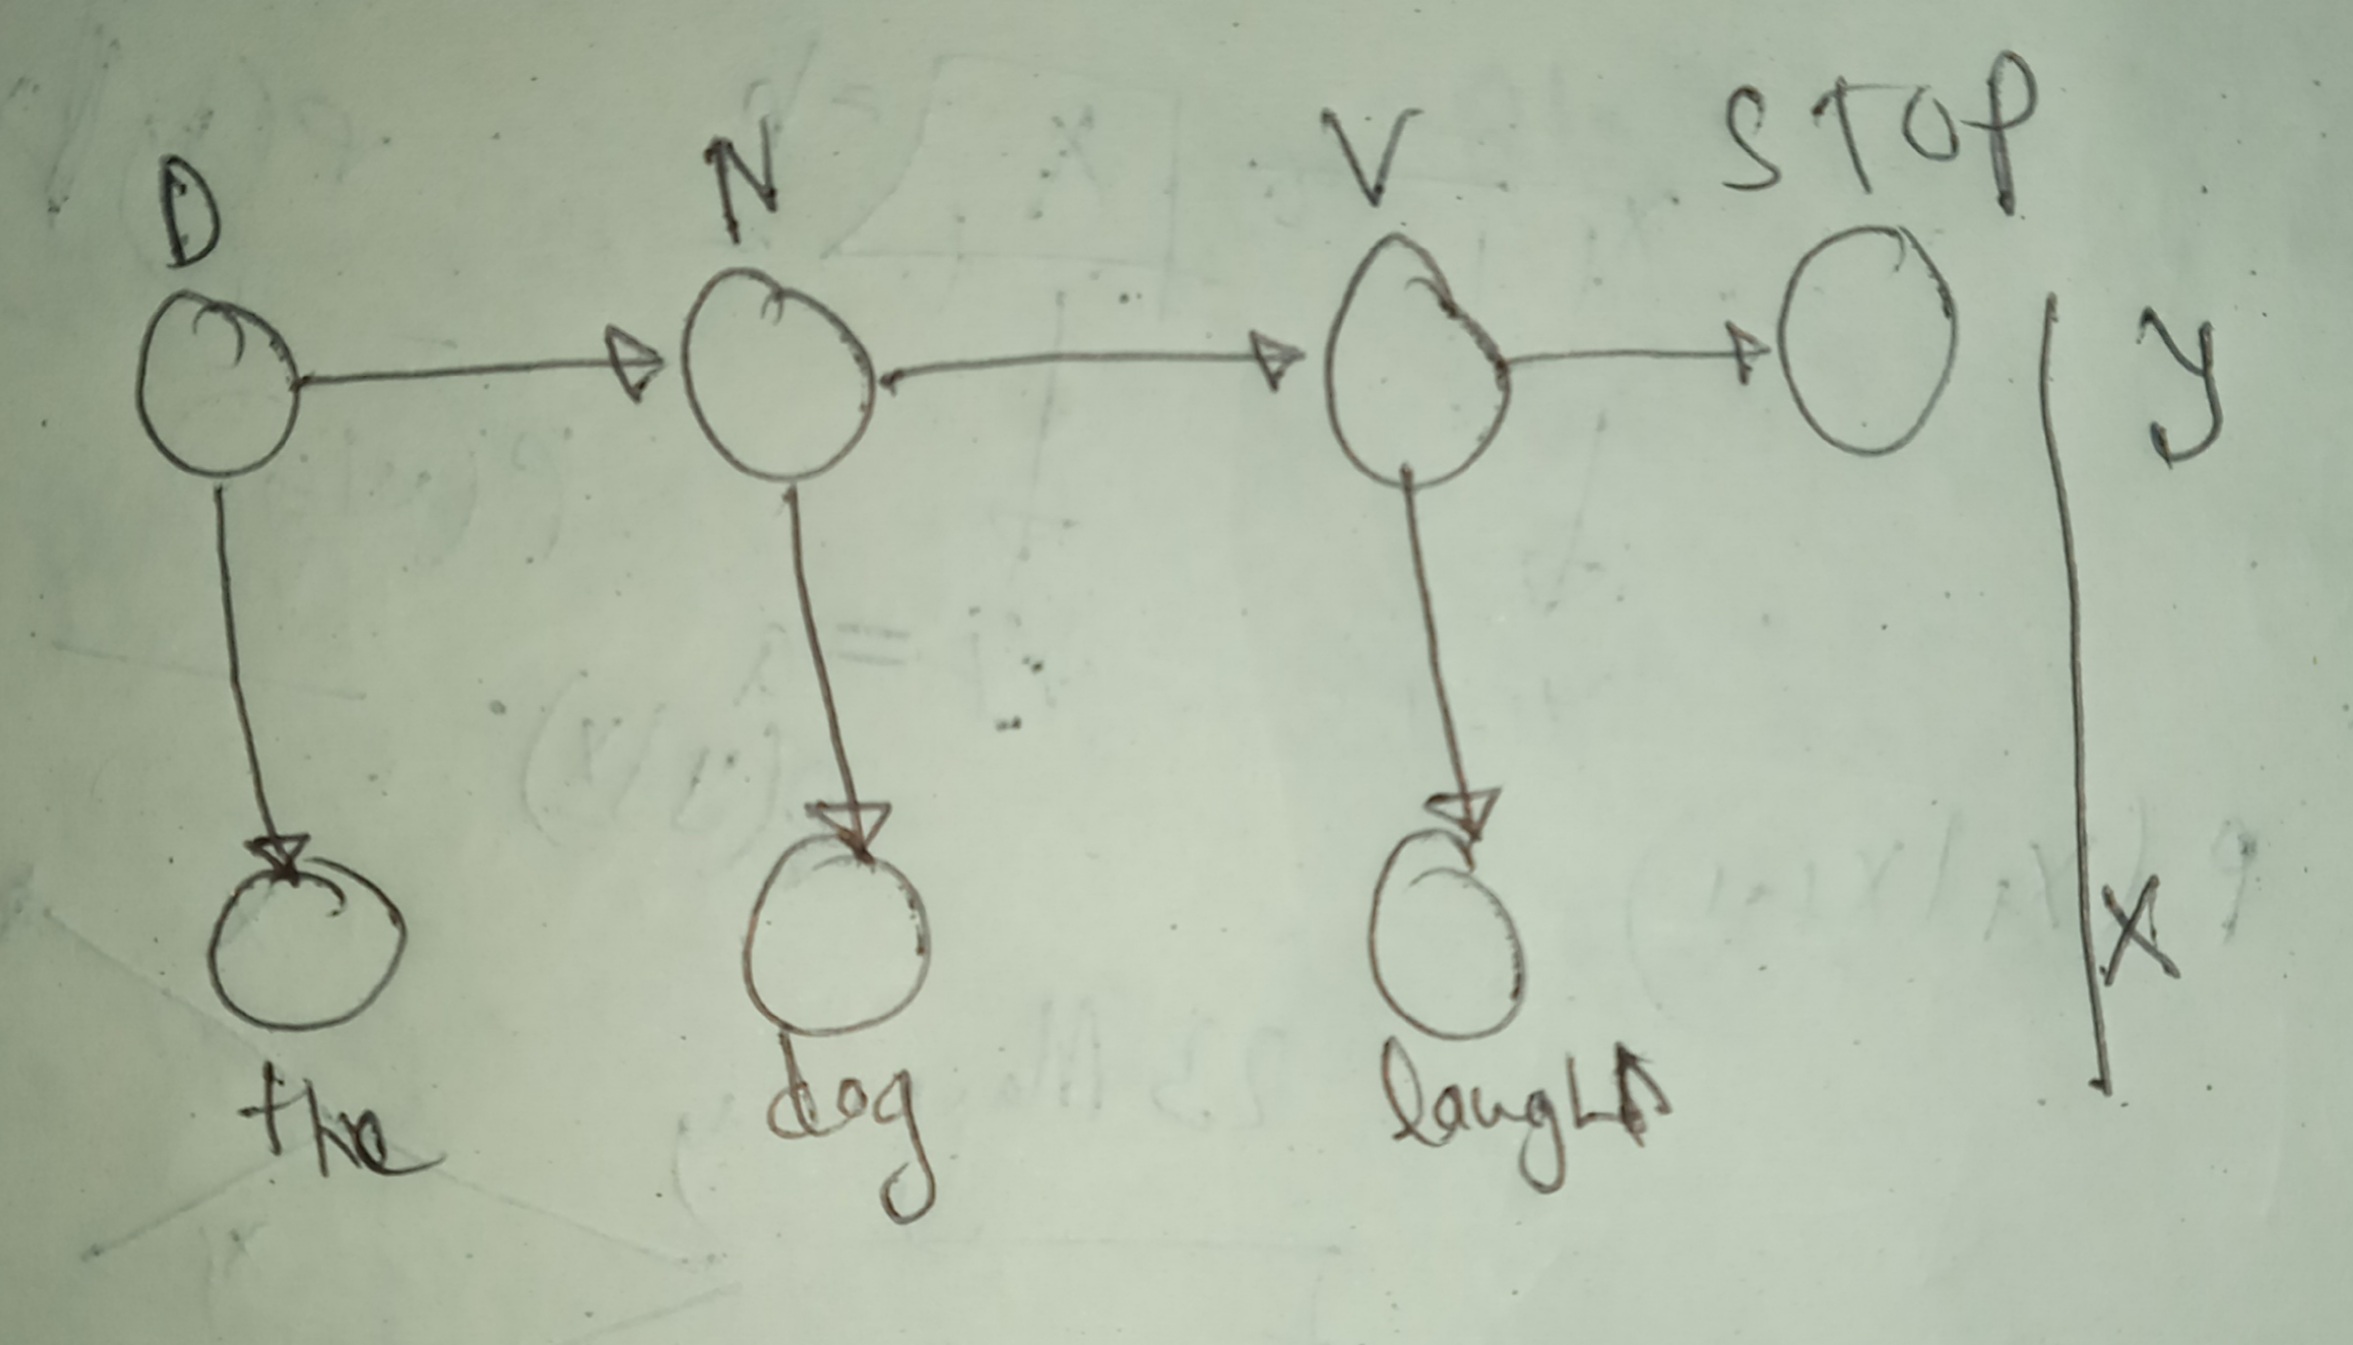 D N V STOP
y
X
the dog laughs